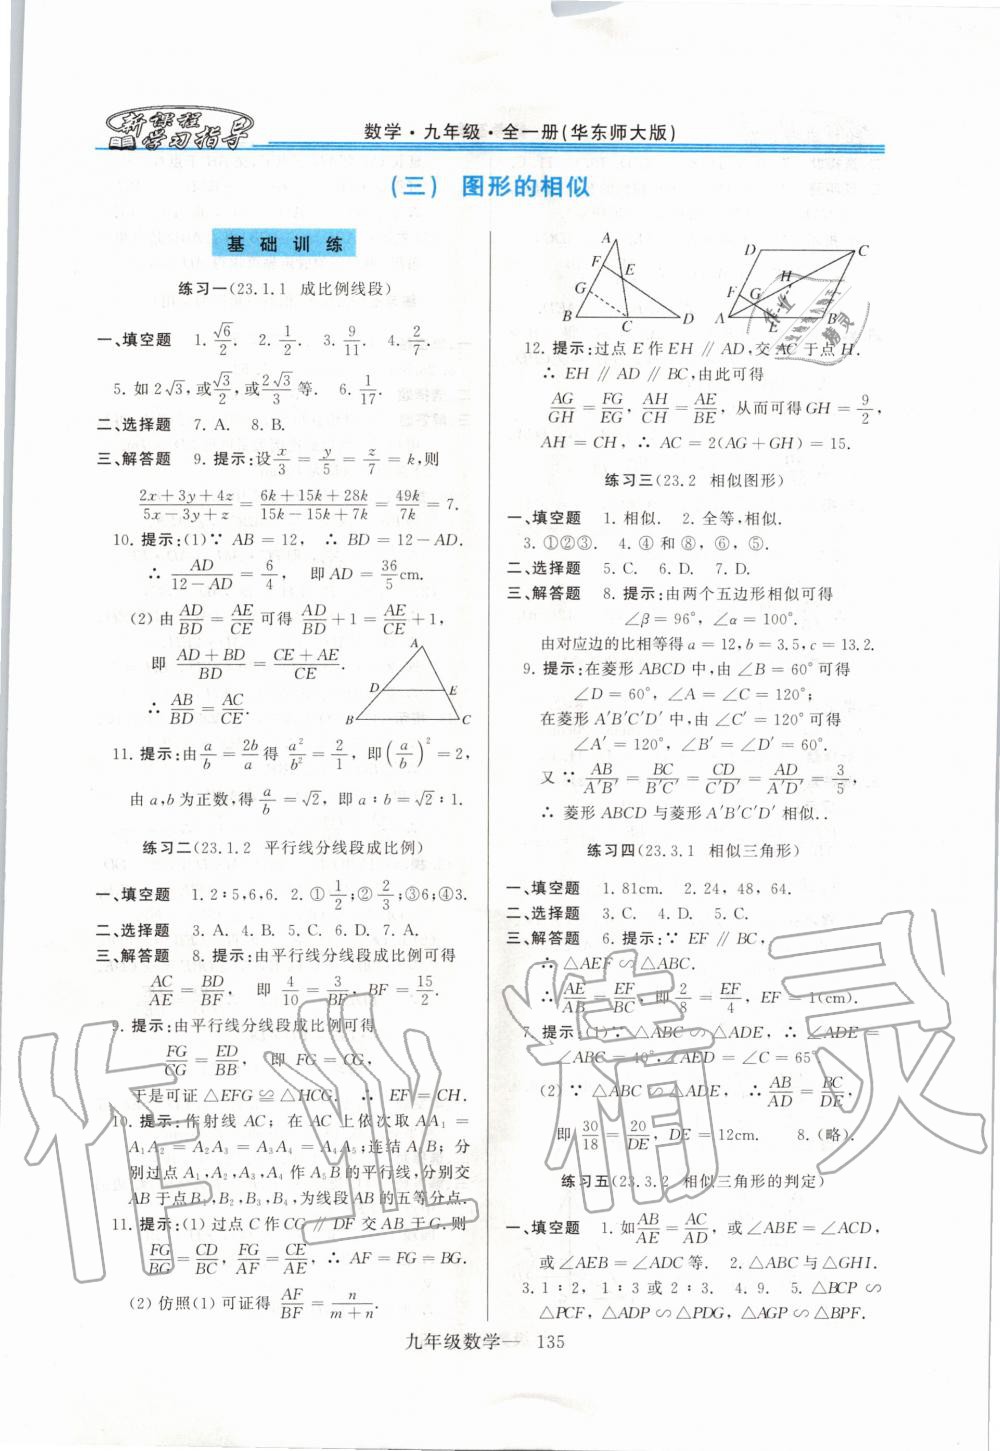 新课程
学习指导
数学·九年级·全一册(华东师大版)
(三) 图形的相似
基础训练
练习一(23.1.1 成比例线段)
一、填空题 1. √6/2. 2. 1/2. 3. 9/11. 4. 2/7.
5. 如 2√3,或√3/2,或2√3/3等. 6. 1/17.
二、选择题 7. A. 8. B.
三、解答题 9. 提示:设x/3=y/5=z/7=k,则
(2x+3y+4z)/(5x-3y+z)=(6k+15k+28k)/(15k-15k+7k)=49k/7k=7.
10. 提示:(1)∵ AB=12, ∴ BD=12-AD.
∴ AD/(12-AD)=6/4, 即 AD=36/5 cm.
(2) 由 AD/BD=AE/CE 可得 AD/BD+1=AE/CE+1,
即 (AD+BD)/BD=(CE+AE)/CE.
∴ AB/BD=AC/CE.
A
D E
B C
11. 提示:由a/b=2b/a得 a²/b²=2/1, 即(a/b)²=2,
由 a,b 为正数,得 a/b=√2, 即 a∶b=√2∶1.
练习二(23.1.2 平行线分线段成比例)
一、填空题 1. 2∶5,6,6. 2. ①1/2;②2/3;③6;④3.
二、选择题 3. A. 4. B. 5. C. 6. D. 7. A.
三、解答题 8. 提示:由平行线分线段成比例可得
AC/AE=BD/BF, 即 4/10=3/BF, BF=15/2.
9. 提示:由平行线分线段成比例可得
FG/CG=ED/BB, 即 FG=CG,
于是可证△EFG≌△HCG. ∴ EF=CH.
10. 提示:作射线 AC; 在 AC 上依次取 AA₁=
A₁A₂=A₂A₃=A₃A₄=A₄A₅;连结 A₅B; 分
别过点 A₁,A₂,A₃,A₄ 作 A₅B 的平行线,分别交
AB 于点 B₁,B₂,B₃,B₄,为线段 AB 的五等分点.
11. 提示:(1) 过点 C 作 CG∥DF 交 AB 于 G,则
FG/BG=CD/BC, FG/AF=CE/AE, ∴ AF=FG=BG.
(2) 仿照(1)可证得 AF/BF=n/(m+n).
A
F E
G
B C D
D C
H
F G
A E B
12. 提示:过点 E 作 EH∥AD,交 AC 于点 H.
∴ EH∥AD∥BC,由此可得
AG/GH=FG/EG, AH/CH=AE/BE, 从而可得 GH=9/2,
AH=CH, ∴ AC=2(AG+GH)=15.
练习三(23.2 相似图形)
一、填空题 1. 相似. 2. 全等,相似.
3. ①②③. 4. ④ 和 ⑧, ⑥, ⑤.
二、选择题 5. C. 6. D. 7. D.
三、解答题 8. 提示:由两个五边形相似可得
∠β=96°, ∠α=100°.
由对应边的比相等得 a=12,b=3.5,c=13.2.
9. 提示:在菱形 ABCD 中,由∠B=60°可得
∠D=60°, ∠A=∠C=120°;
在菱形 A′B′C′D′ 中,由∠C′=120°可得
∠A′=120°, ∠B′=∠D′=60°.
又 ∵ AB/A′B′=BC/B′C′=CD/C′D′=AD/A′D′=3/5,
∴ 菱形 ABCD 与菱形 A′B′C′D′ 相似..
练习四(23.3.1 相似三角形)
一、填空题 1. 81cm. 2. 24, 48, 64.
二、选择题 3. C. 4. D. 5. C.
三、解答题 6. 提示:∵ EF∥BC,
∴ △AEF∽△ABC.
∴ AE/AB=EF/BC,即 2/8=EF/4, EF=1(cm).
7. 提示:(1)∵ △ABC∽△ADE, ∴ ∠ADE=
∠ABC=40°,∠AED=∠C=65°
(2) ∵ △ABC∽△ADE, ∴ AB/AD=BC/DE,
即 30/18=20/DE, DE=12cm. 8. (略).
练习五(23.3.2 相似三角形的判定)
一、填空题 1. 如AB/AE=AC/AD, 或∠ABE=∠ACD,
或∠AEB=∠ADC 等. 2. △ABC 与△GHI.
3. 1∶2, 1∶3 或 2∶3. 4. 9. 5. △BCP∽
△PCF, △ADP∽△PDG, △AGP∽△BPF.
九年级数学— 135
作业精灵
作业
精灵